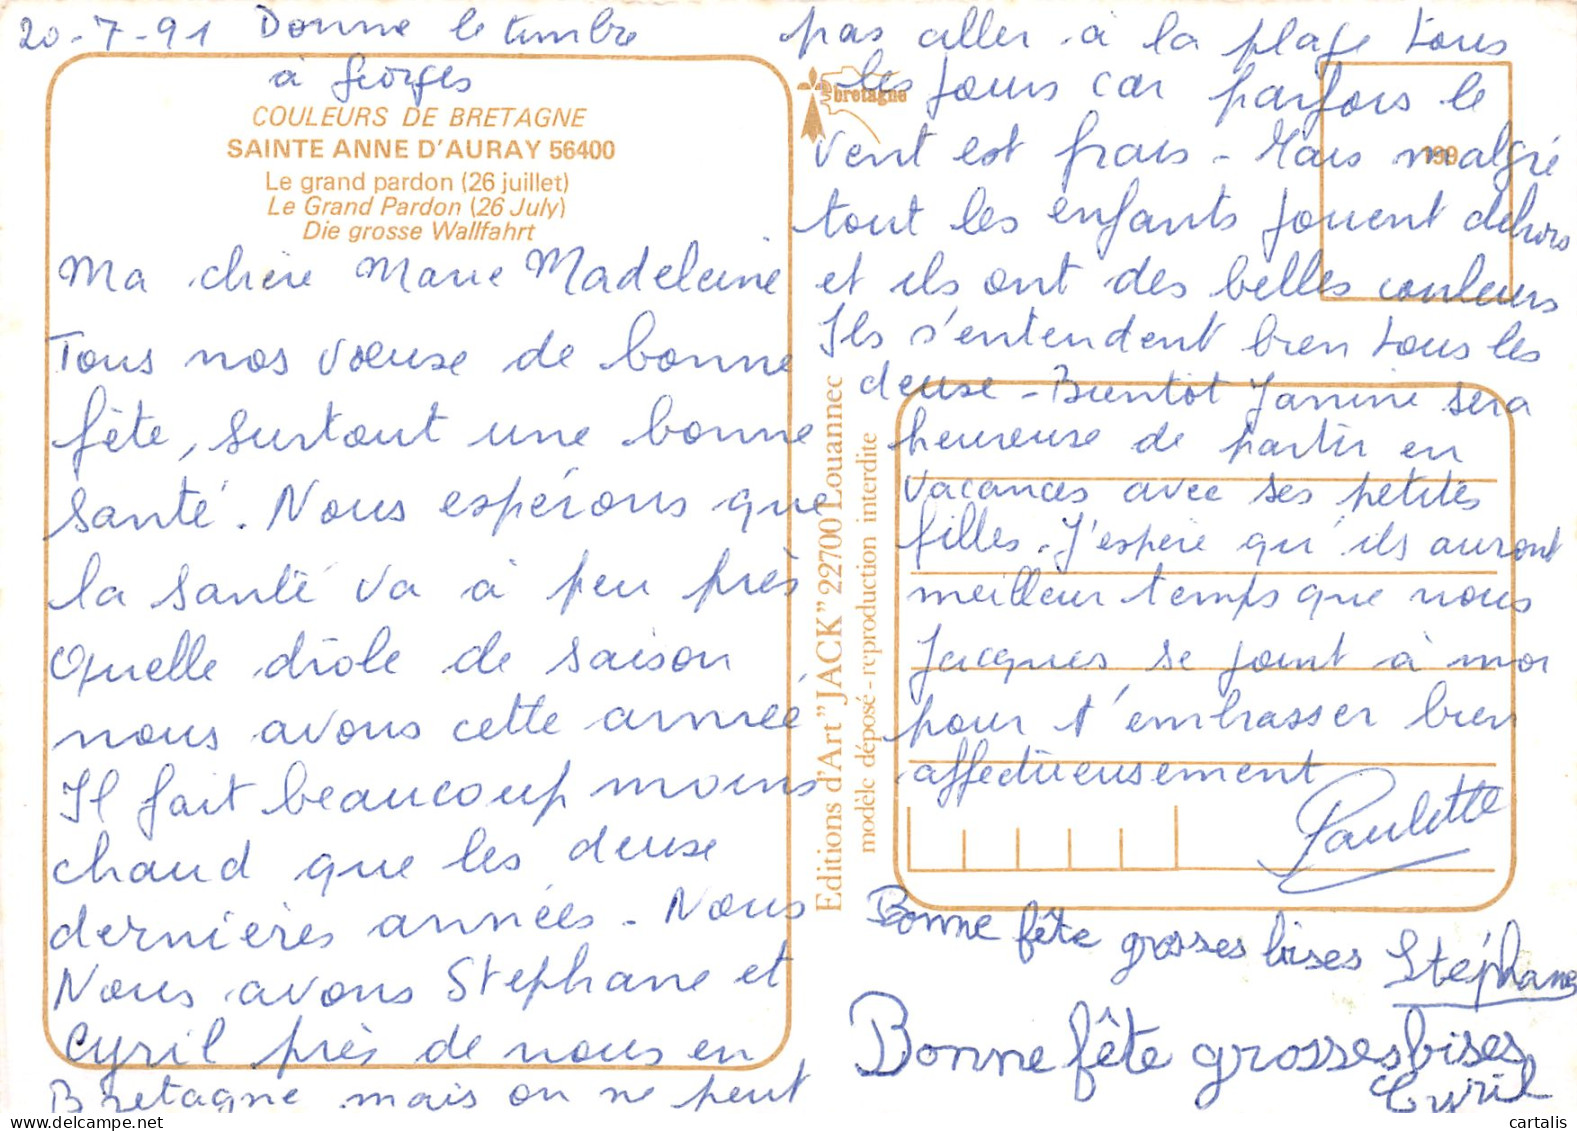 20-7-91 Donne le timbre
à Georges
COULEURS DE BRETAGNE
SAINTE ANNE D'AURAY 56400
Le grand pardon (26 juillet)
Le Grand Pardon (26 July)
Die grosse Wallfahrt
Ma chère Marie Madeleine
Tous nos voeuse de bonne
fête, surtout une bonne
santé. Nous espérons que
la santé va à peu près
Quelle drôle de saison
nous avons cette année
Il fait beaucoup moins
chaud que les deuse
dernières années - Nous
Nous avons Stephane et
Cyril près de nous en
Bretagne mais on ne peut
pas aller à la plage tous
les jours car parfois le
vent est frais - Mais malgré
tout les enfants jouent dehors
et ils ont des belles couleurs
Ils s'entendent bien tous les
deuse - Bientôt Janine sera
heureuse de partir en
vacances avec ses petites
filles. J'espère qu'ils auront
meilleur temps que nous
Jacques se joint à moi
pour t'embrasser bien
affectueusement
Paulette
Bonne fête grosses bises Stéphane
Bonne fête grosses bises
Cyril
bretagne
199
Editions d'Art "JACK" 22700 Louannec
modèle déposé - reproduction interdite
cartalis